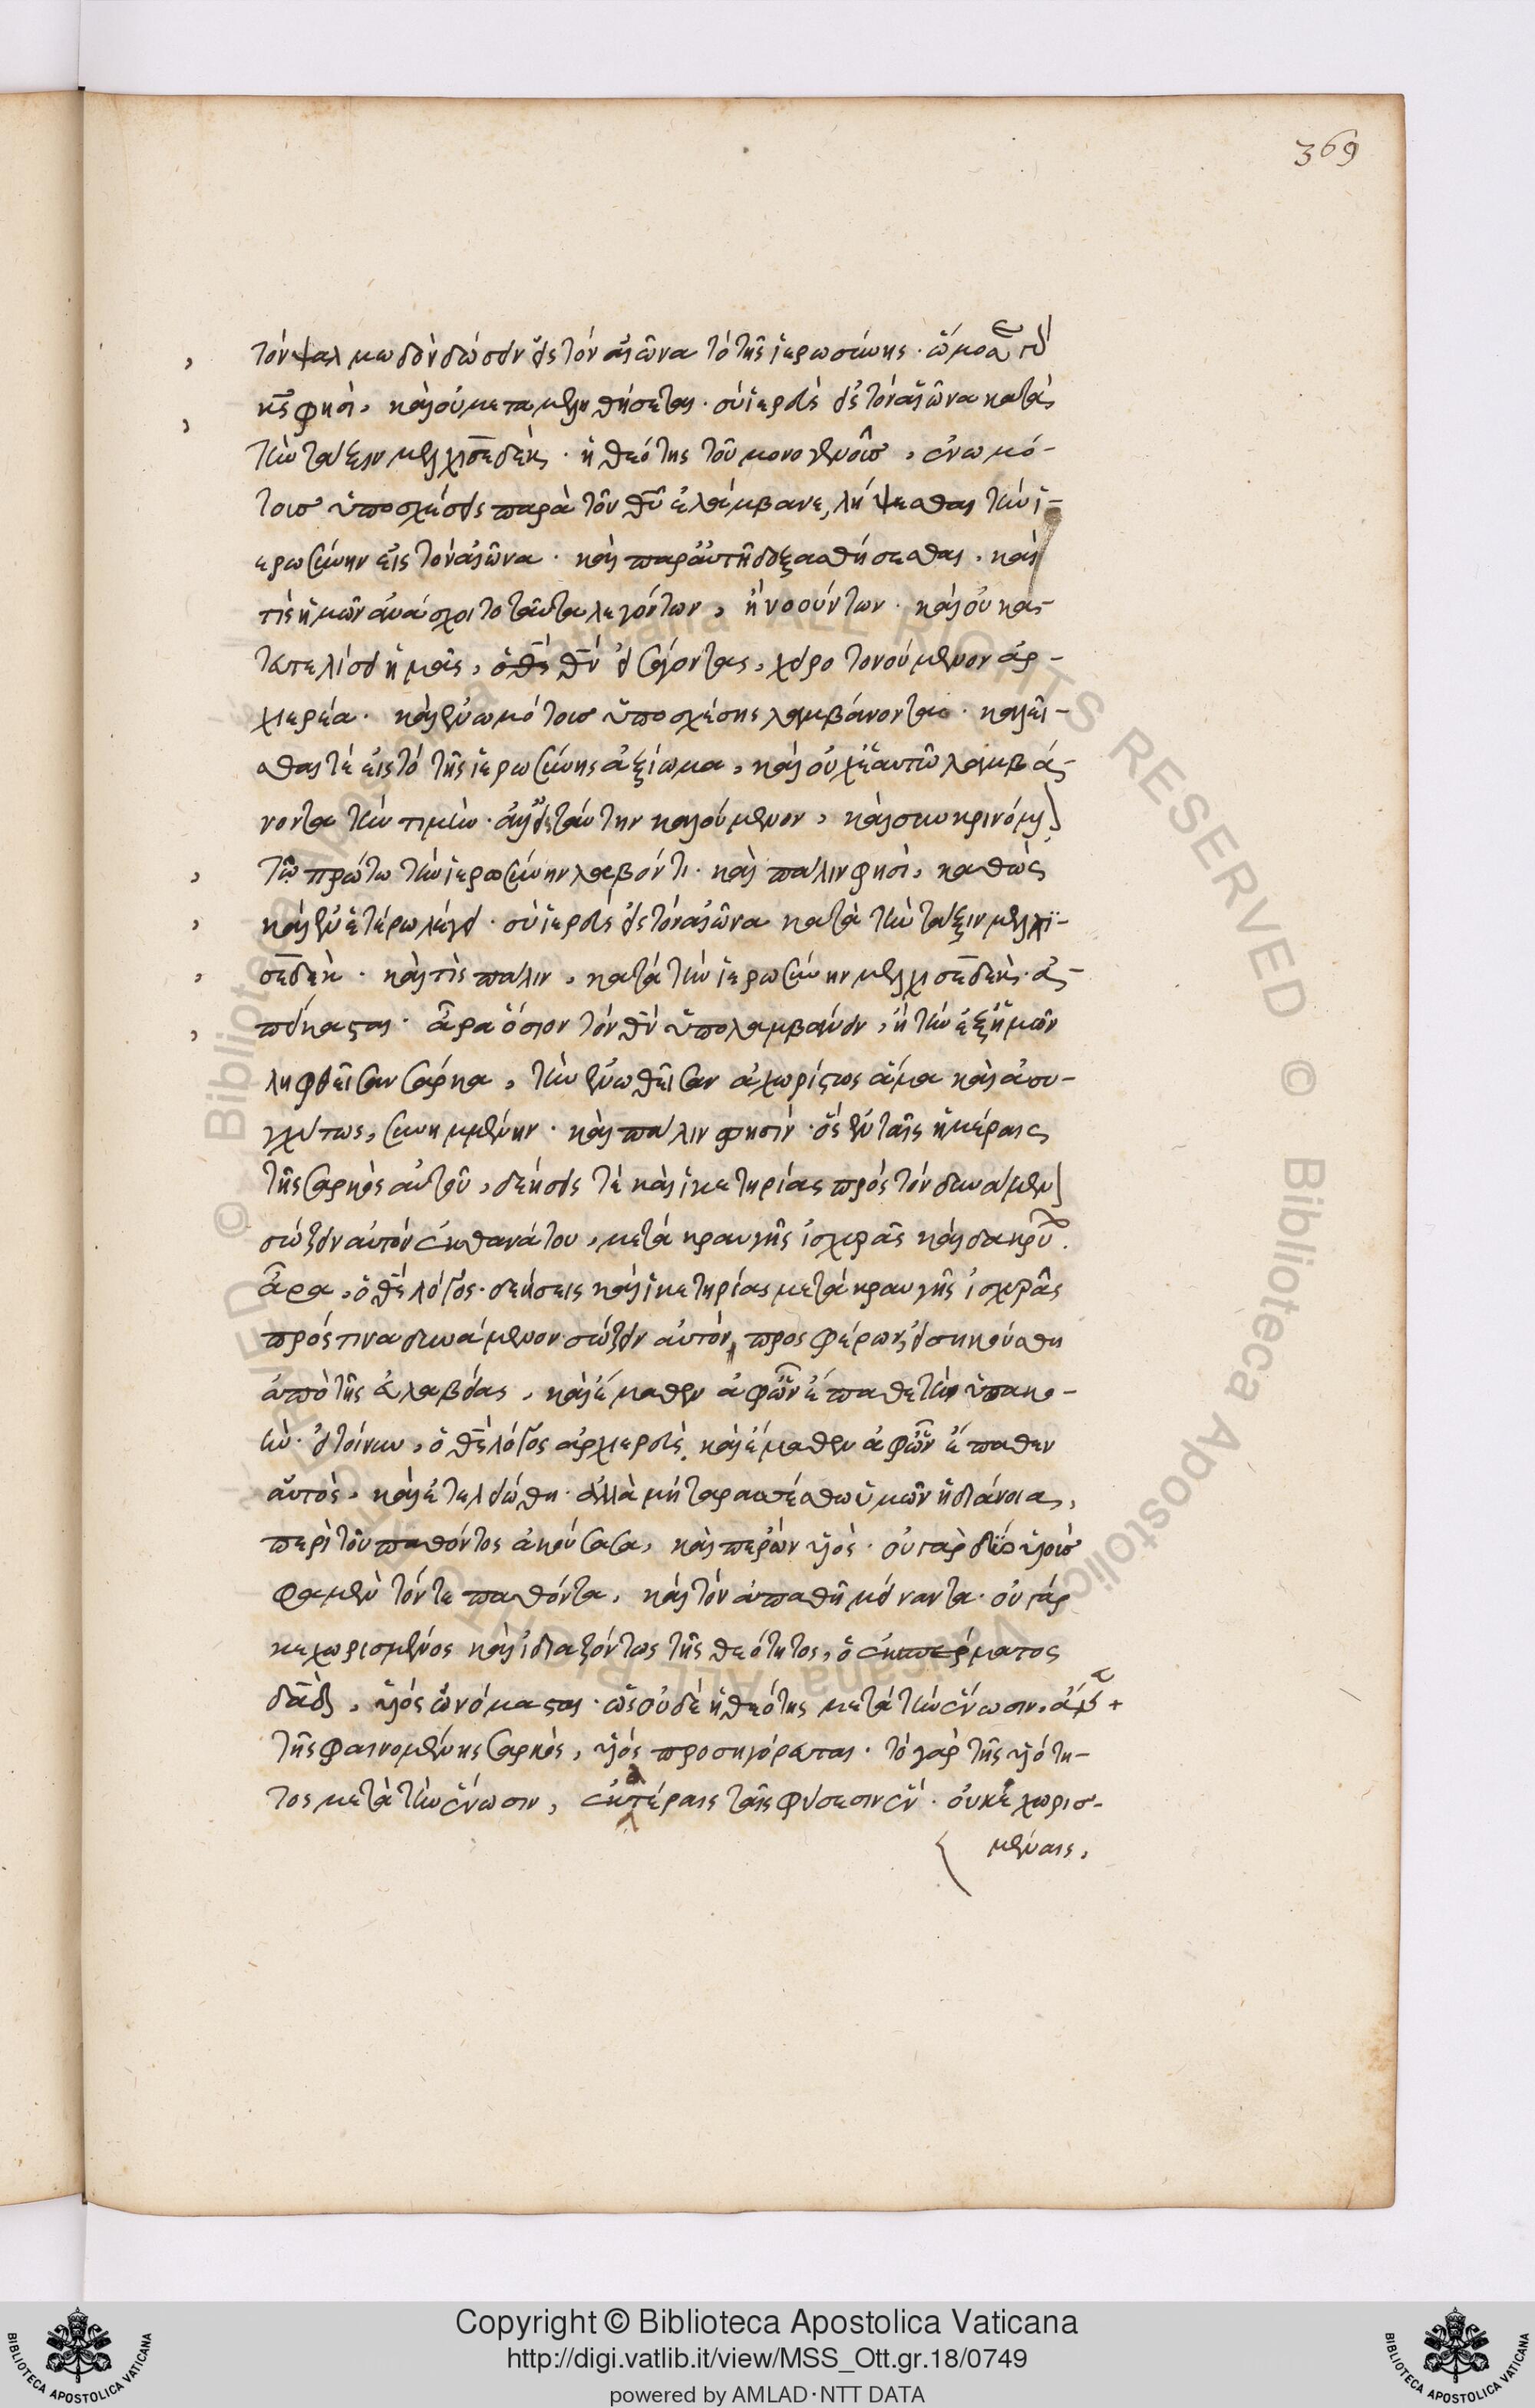 369
τὸν ψαλμωδὸν δώσειν εἰς τὸν αἰῶνα τὸ τῆς ἱερωσύνης · ὤμοσε γὰρ
κ̅ς̅ φησὶ, καὶ οὐ μεταμεληθήσεται · σὺ ἱερεὺς εἰς τὸν αἰῶνα κατὰ
τὴν τάξιν μελχισεδὲκ · ἡ θεότης τοῦ μονογενοῦς, ἐνωμό-
τους ὑποσχέσεις παρὰ τοῦ θ̅υ̅ ἐλάμβανε, λήψεσθαι τὴν ἱ-
ερωσύνην εἰς τὸν αἰῶνα · καὶ παρ' αὐτῆ δοξασθήσεσθαι, καὶ
τίς ἡμῶν ἀνάσχοιτο ταῦτα λεγόντων, ἢ νοούντων · καὶ οὐ κα-
ταπελίσει ἡμᾶς, θ̅ν̅ εἰσάγοντας, χειροτονούμενον ἀρ-
χιερέα · καὶ ἐνωμότους ὑποσχέσεις λαμβάνοντα · καλεῖ-
σθαί τε εἰς τὸ τῆς ἱερωσύνης ἀξίωμα, καὶ οὐχ ἑαυτῶ λαμβά-
νοντα τὴν τιμὴν · ἀλλ' εἰς ταύτην καλούμενον, καὶ συγκρινόμενον
τῶ πρώτω τὴν ἱερωσύνην λαβόντι · καὶ πάλιν φησὶ, καθὼς
καὶ ἐν ἑτέρω λέγει · σὺ ἱερεὺς εἰς τὸν αἰῶνα κατὰ τὴν τάξιν μελχι-
σεδὲκ · καὶ τίς πάλιν, κατὰ τὴν ἱερωσύνην μελχισεδὲκ · ἀ-
πείκασται · ἆρα ὅσιον τὸν θ̅ν̅ ὑπολαμβάνειν, ἢ τὴν ἐξ ἡμῶν
ληφθεῖσαν σάρκα, τὴν ἑνωθεῖσαν ἀχωρίστως ἅμα καὶ ἀσυ-
γχύτως, συνημμένην · καὶ πάλιν φησίν · ὃς ἐν ταῖς ἡμέραις
τῆς σαρκὸς αὐτοῦ, δεήσεις τὲ καὶ ἱκετηρίας πρὸς τὸν δυνάμενον
σώζειν αὐτὸν ἐκ θανάτου, μετὰ κραυγῆς ἰσχυρᾶς καὶ δακρύων ·
ἆρα, ὁ θ̅ς̅ λόγος · δεήσεις καὶ ἱκετηρίας μετὰ κραυγῆς ἰσχυρᾶς
πρός τινα δυνάμενον σώζειν αὐτὸν, προσφέρων, εἰσηκούσθη
ἀπὸ τῆς εὐλαβείας, καὶ ἔμαθεν ἀφ' ὧν ἔπαθε τὴν ὑπακο-
ὴν · εἰ τοίνυν, ὁ θ̅ς̅ λόγος ἀρχιερεὺς, καὶ ἔμαθεν ἀφ' ὧν ἔπαθεν
αὐτὸς, καὶ ἐτελειώθη · ἀλλὰ μὴ ταρασσέσθω ὑμῶν ἡ διάνοια,
περὶ τοῦ παθόντος ἀκούσασα, καίπερ ὢν υἱὸς · οὐ γὰρ δύο υἱοὺς
φαμὲν τόν τε παθόντα, καὶ τὸν ἀπαθῆ μείναντα · οὐ γὰρ
κεχωρισμένος καὶ ἰδιαζόντως τῆς θεότητος, ὁ ἐκ σπέρματος
δ̅α̅δ̅, υἱὸς ὠνόμασται · ὡς οὐδὲ ἡ θεότης μετὰ τὴν ἕνωσιν, ἄνευ
τῆς φαινομένης σαρκὸς, υἱὸς προσηγόρευται · τὸ γὰρ τῆς υἱότη-
τος μετὰ τὴν ἕνωσιν, ἑκατέραις ταῖς φύσεσιν ἓν · οὐ κεχωρισ-
μέναις,
Copyright © Biblioteca Apostolica Vaticana
http://digi.vatlib.it/view/MSS_Ott.gr.18/0749
powered by AMLAD·NTT DATA